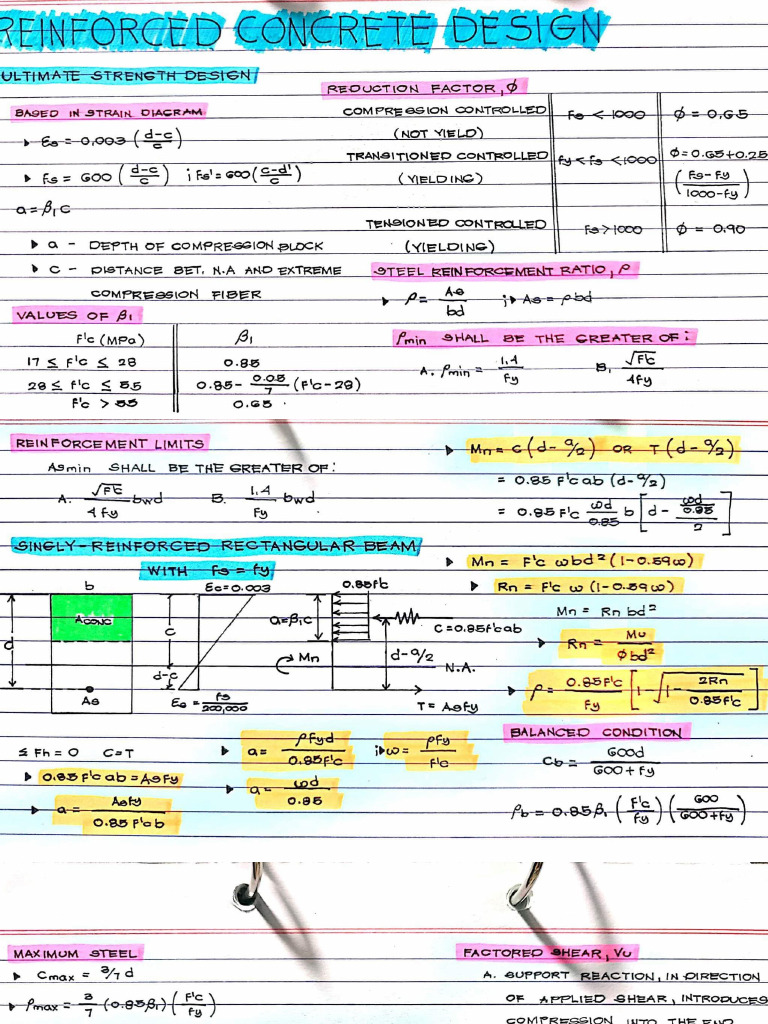 REINFORCED CONCRETE DESIGN
ULTIMATE STRENGTH DESIGN
BASED IN STRAIN DIAGRAM
▸ Es = 0.003 ( d-c / c )
▸ Fs = 600 ( d-c / c ) ; Fs' = 600 ( c-d' / c )
a = β₁c
▸ a - DEPTH OF COMPRESSION BLOCK
▸ c - DISTANCE BET. N.A AND EXTREME
COMPRESSION FIBER
REDUCTION FACTOR, Ø
COMPRESSION CONTROLLED (NOT YIELD) Fs < 1000 Ø = 0.65
TRANSITIONED CONTROLLED (YIELDING) Fy < Fs < 1000 Ø = 0.65 + 0.25 ( Fs-Fy / 1000-Fy )
TENSIONED CONTROLLED (YIELDING) Fs > 1000 Ø = 0.90
STEEL REINFORCEMENT RATIO, ρ
▸ ρ = As / bd ; ▸ As = ρbd
VALUES OF β₁
F'c (MPa) β₁
17 ≤ F'c ≤ 28 0.85
28 ≤ F'c ≤ 55 0.85 - 0.05 / 7 (F'c-28)
F'c > 55 0.65
ρmin SHALL BE THE GREATER OF:
A. ρmin = 1.4 / Fy B. √F'c / 4Fy
REINFORCEMENT LIMITS
Asmin SHALL BE THE GREATER OF:
A. √F'c / 4Fy bwd B. 1.4 / Fy bwd
▸ Mn = C (d - a/2) OR T (d - a/2)
= 0.85 F'c ab (d - a/2)
= 0.85 F'c ωd / 0.85 b [ d - ωd / 0.85 / 2 ]
▸ Mn = F'c ωbd² (1-0.59ω)
▸ Rn = F'c ω (1-0.59ω)
Mn = Rn bd²
▸ Rn = Mu / Øbd²
▸ ρ = 0.85F'c / Fy [ 1 - √ 1 - 2Rn / 0.85F'c ]
SINGLY-REINFORCED RECTANGULAR BEAM
WITH Fs = Fy
b
d
Aconc
As
Ec=0.003
c
d-c
Es = fs / 200,000
0.85f'c
a=β₁c
C=0.85f'cab
Mn
d-a/2
N.A.
T = AsFy
Σ Fh = 0 C=T
▸ 0.85 F'c ab = AsFy
▸ a = AsFy / 0.85 F'c b
▸ a = ρFyd / 0.85F'c ; ▸ ω = ρFy / F'c
▸ a = ωd / 0.85
BALANCED CONDITION
Cb = 600d / 600 + Fy
ρb = 0.85β₁ ( F'c / Fy ) ( 600 / 600+Fy )
MAXIMUM STEEL
▸ Cmax = 3/7 d
▸ ρmax = 3/7 (0.85β₁) ( F'c / Fy )
FACTORED SHEAR, Vu
A. SUPPORT REACTION, IN DIRECTION
OF APPLIED SHEAR, INTRODUCES
COMPRESSION INTO THE END